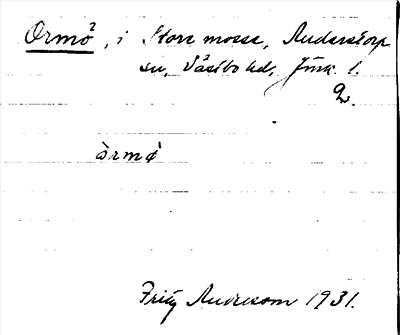 Ormö², i Store mosse, Anderstorp
sn, Västbo hd, Jönk. l.
örmö
Fritz Andersson 1931.